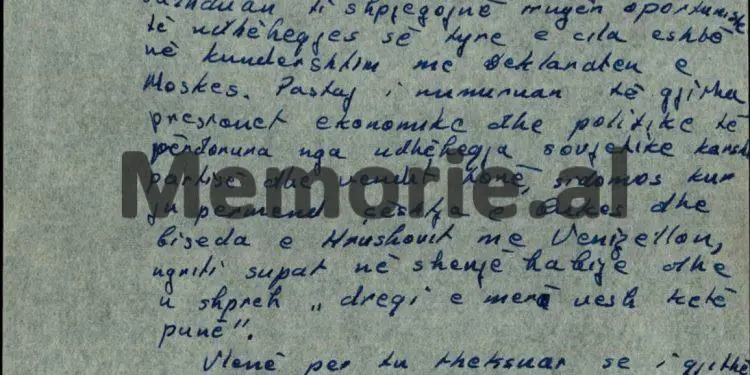 ti shpjegojnë rrugën oportuniste
të udhëheqjes së tyre e cila eshtë
në kundershtim me deklaraten e
Moskes. Pastaj i numuruan të gjitha
presionet ekonomike dhe politike të
përdoruna nga udhëheqja sovjetike karshi
partise dhe vendit tonë, sidomos kur
ju permend çështja e dhe
Memorie.al
biseda e Hrushovit me Venizellon,
ngriti supat në shenjë habije dhe
u shpreh „dreqi e merë vesh ketë
punë".
Vlenë per tu theksuar se i gjithë